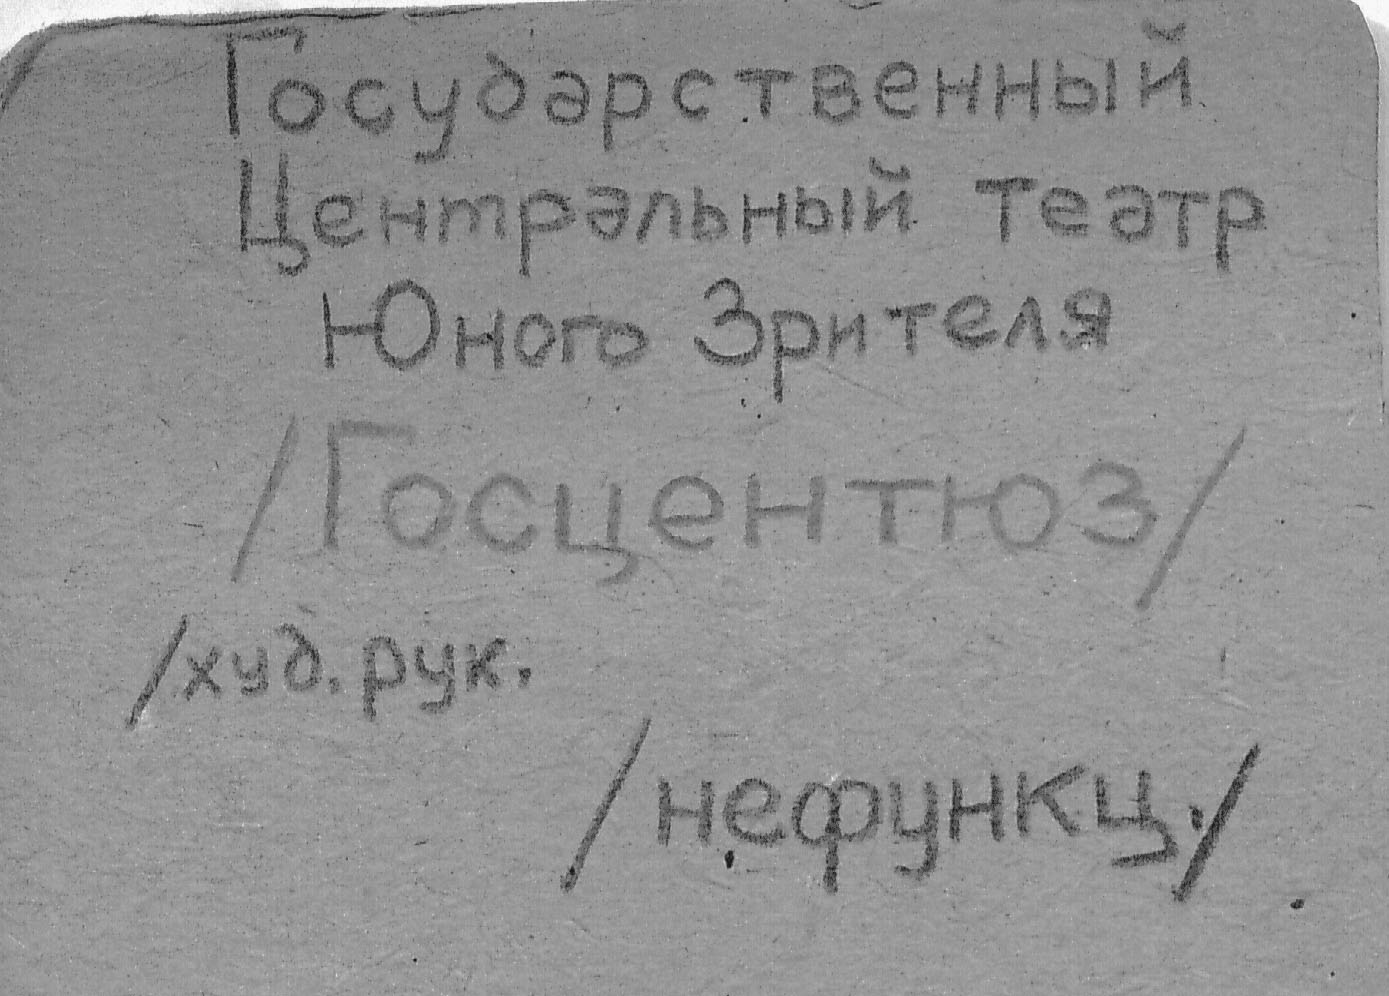 Государственный
Центральный театр
Юного Зрителя
/Госцентюз/
/худ.рук.
/нефункц./